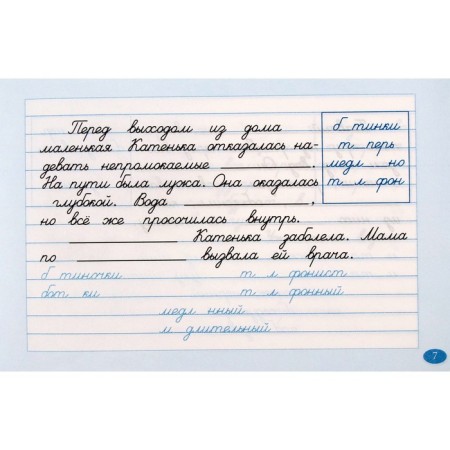 Перед выходом из дома
маленькая Катенька отказалась на-
девать непромокаемые ____________.
На пути была лужа. Она оказалась
глубокой. Вода ____________,
но всё же просочилась внутрь.
____________ Катенька заболела. Мама
по ____________ вызвала ей врача.
б_тинки
т_перь
медл_но
т_л_фон
б_тиночки т_л_фонист
бот_ки т_л_фонный
медл_нный
м_длительный
7